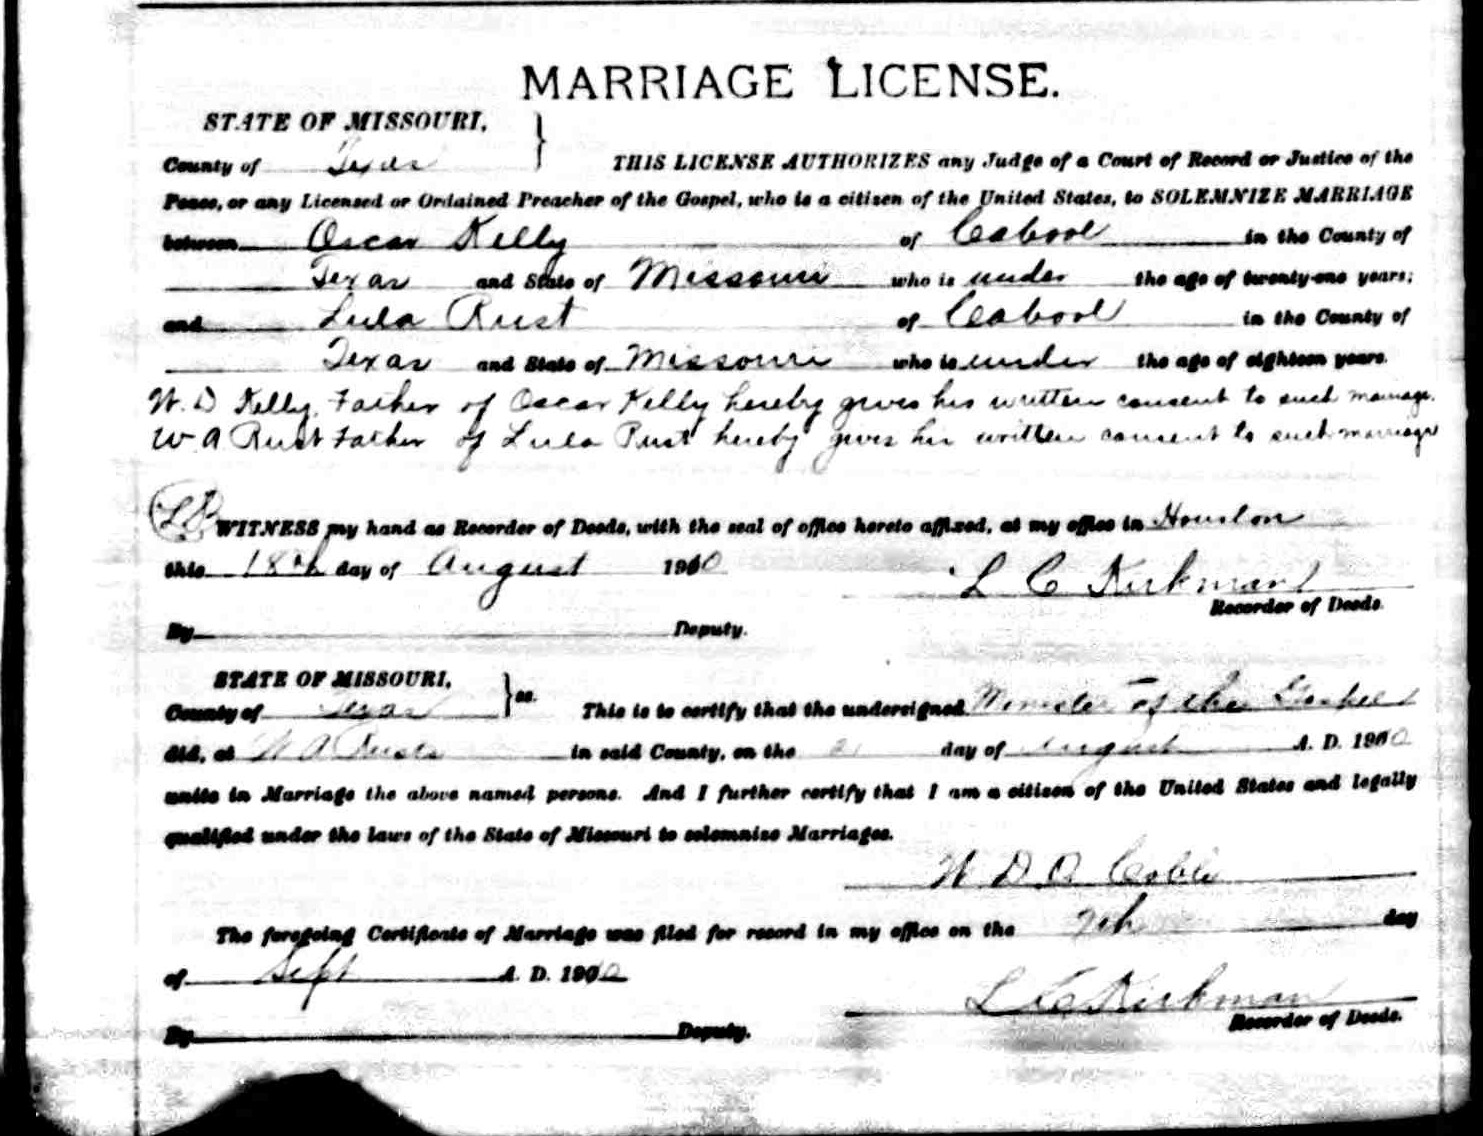 MARRIAGE LICENSE.
STATE OF MISSOURI,
County of Texas } THIS LICENSE AUTHORIZES any Judge of a Court of Record or Justice of the
Peace, or any Licensed or Ordained Preacher of the Gospel, who is a citizen of the United States, to SOLEMNIZE MARRIAGE
between Oscar Kelly of Cabool in the County of
Texas and State of Missouri who is under the age of twenty-one years;
and Lula Rust of Cabool in the County of
Texas and State of Missouri who is under the age of eighteen years.
W. D Kelly, Father of Oscar Kelly hereby gives his written consent to such marriage.
W A Rust Father of Lula Rust hereby gives his written consent to such marriage
LS WITNESS my hand as Recorder of Deeds, with the seal of office hereto affixed, at my office in Houston
this 18th day of August 1910
L C Kirkman
Recorder of Deeds.
By Deputy.
STATE OF MISSOURI,
County of Texas } ss. This is to certify that the undersigned Minister of the Gospel
did, at W A Rusts in said County, on the day of August A. D. 1910
unite in Marriage the above named persons. And I further certify that I am a citizen of the United States and legally
qualified under the laws of the State of Missouri to solemnize Marriages.
W D
The foregoing Certificate of Marriage was filed for record in my office on the 7th day
of Sept A. D. 1910
L C Kirkman
Recorder of Deeds.
By Deputy.